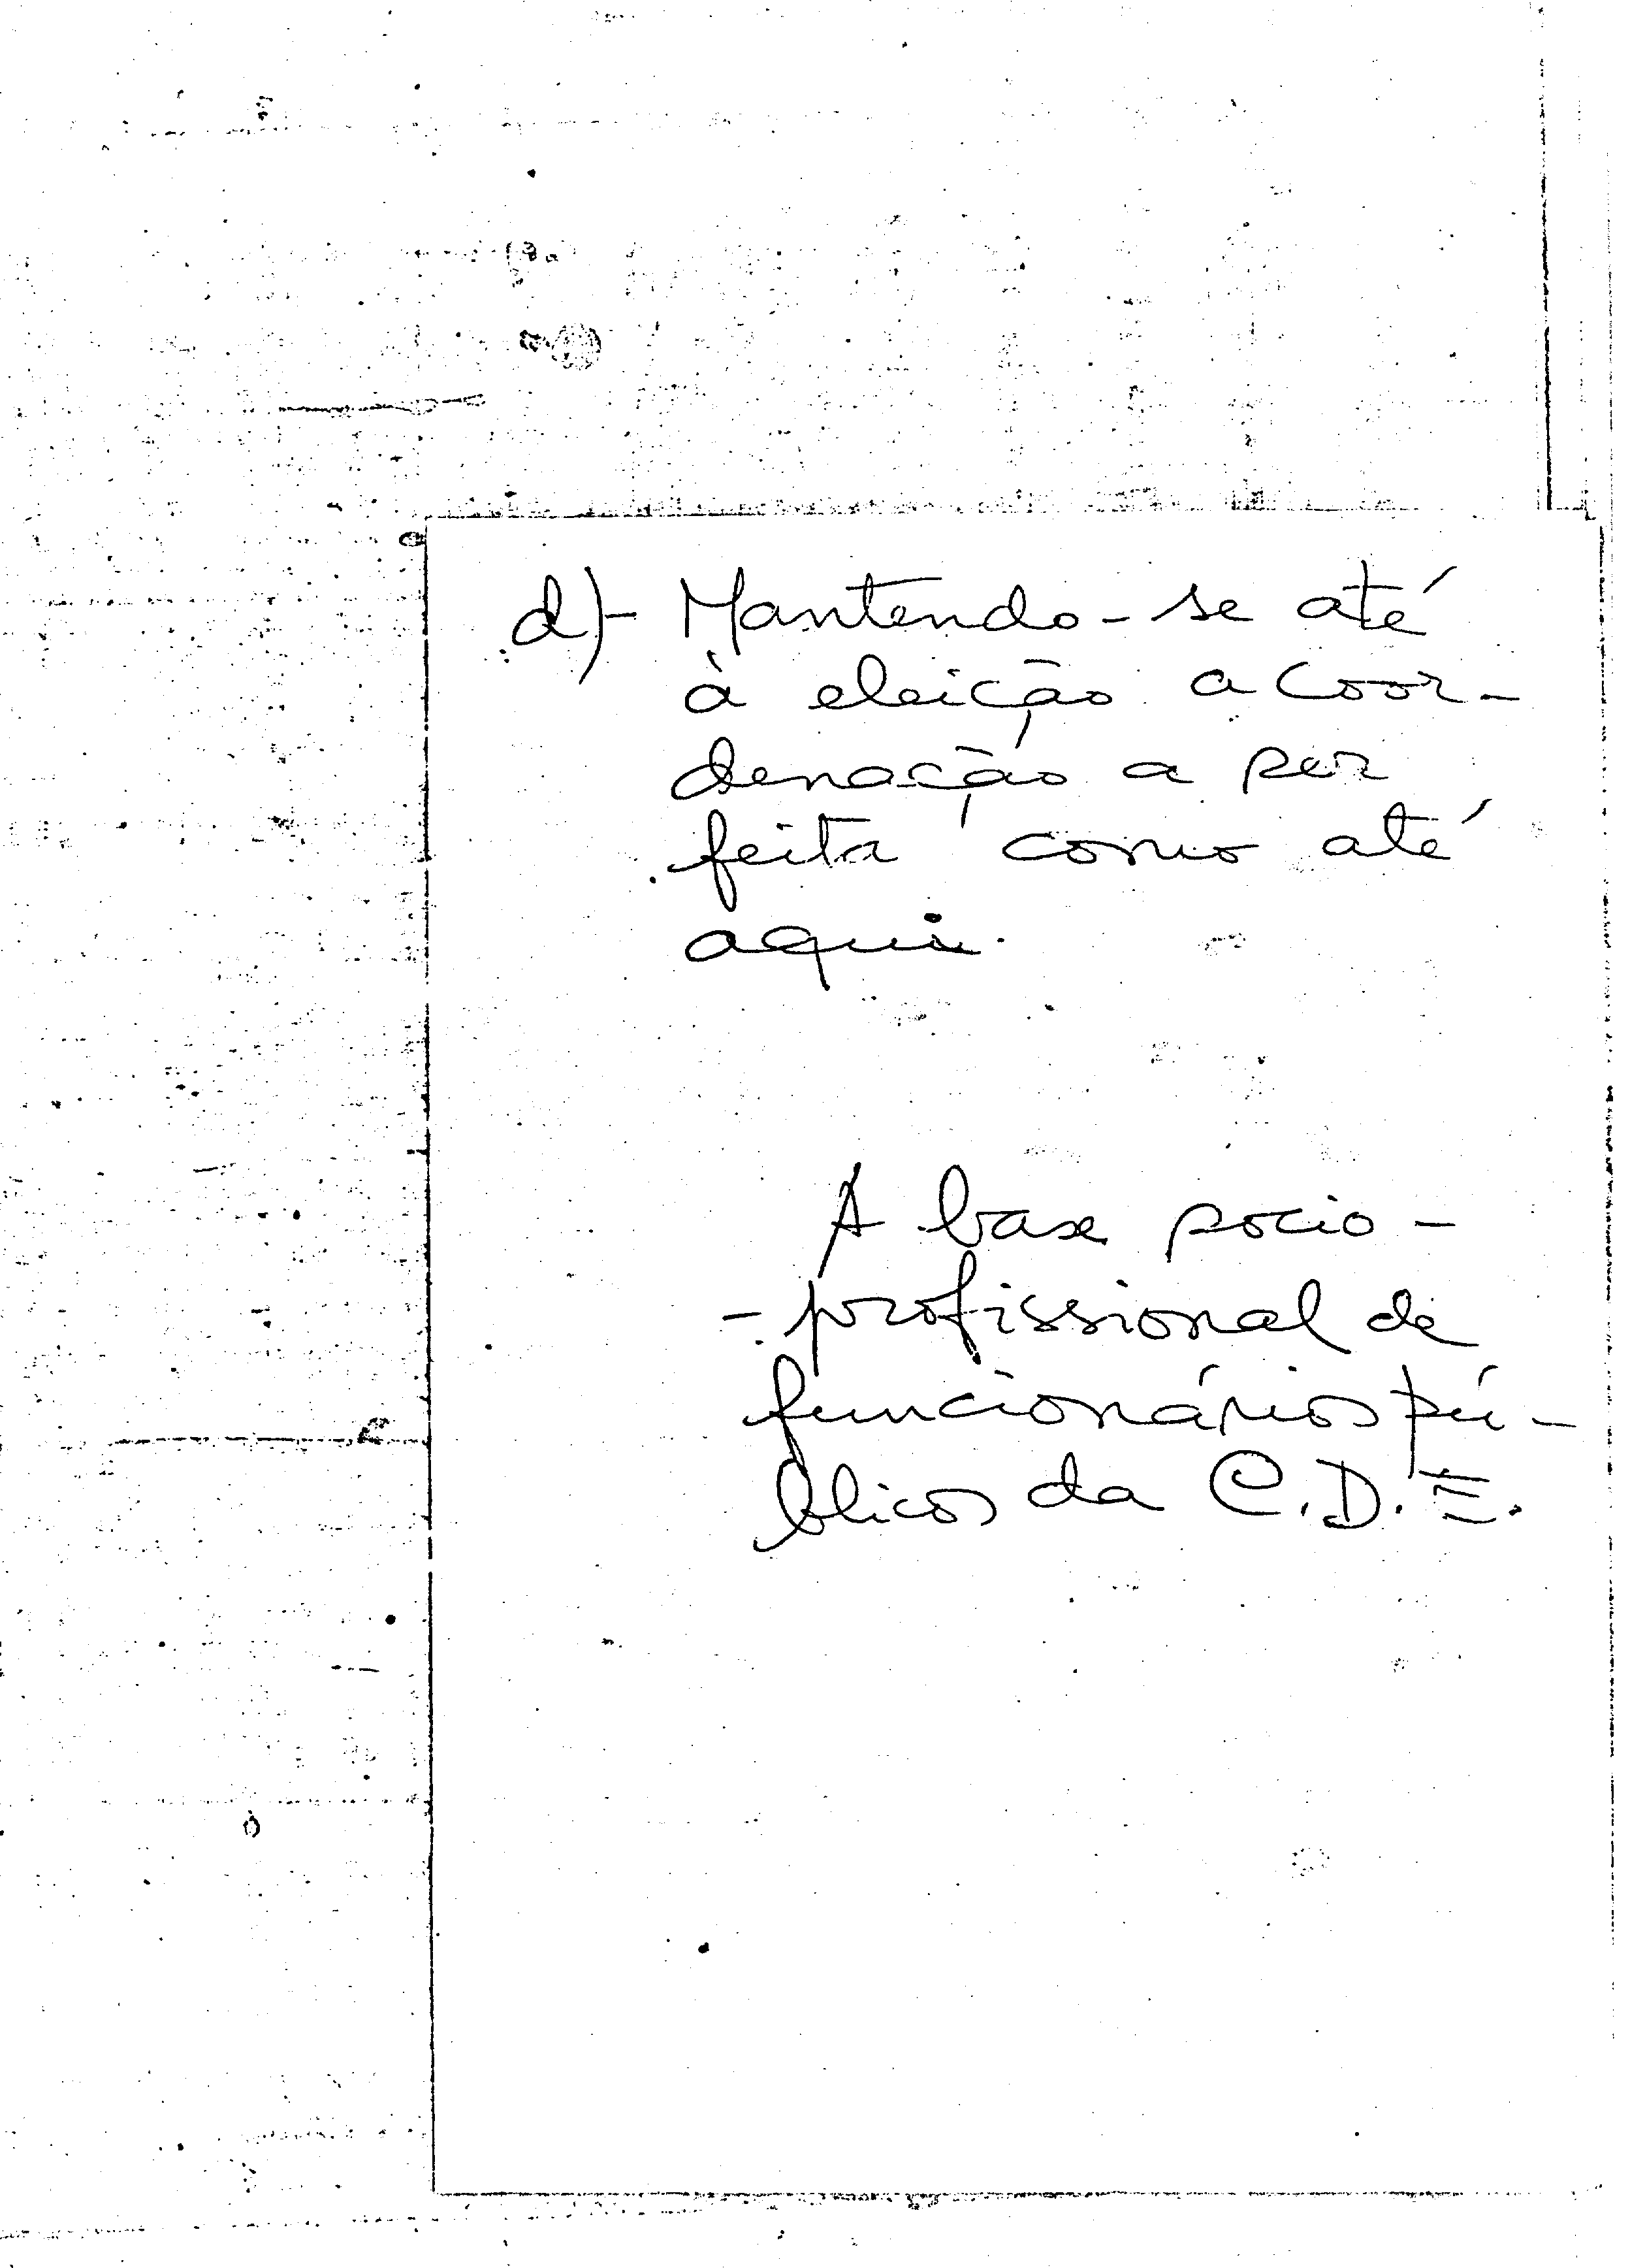 d)- Mantendo-se até
à eleição a Coor-
denação a ser
feita como até
aqui.
A base socio-
-profissional de
funcionários pú-
blicos da C.D.E.